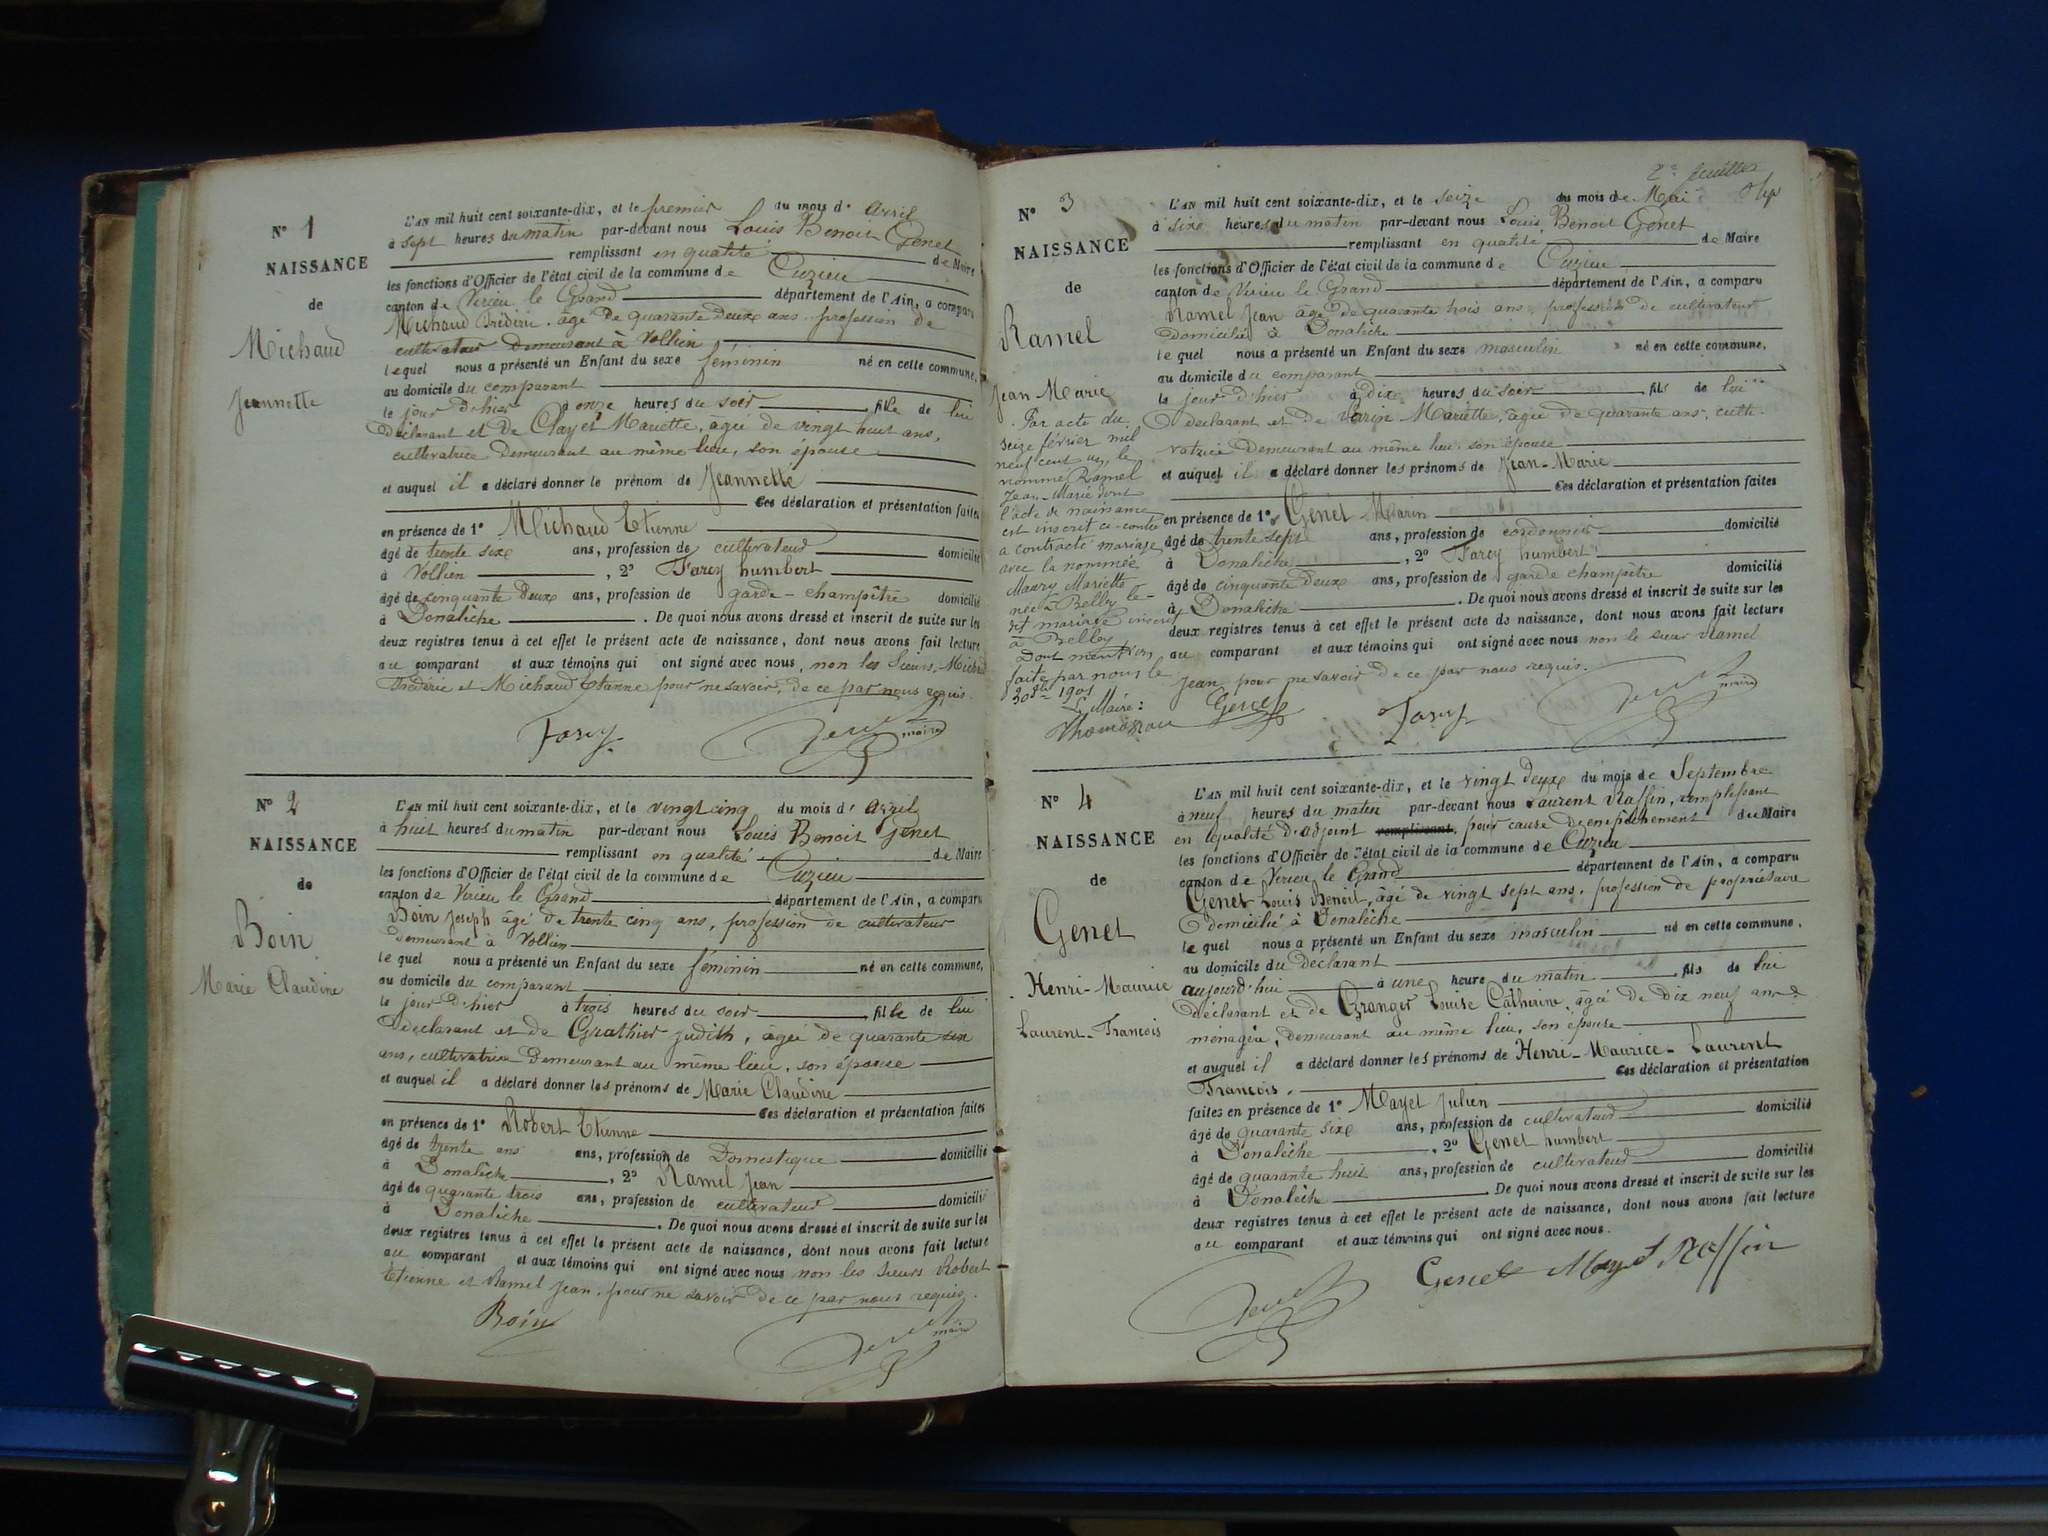 N° 1
NAISSANCE
de
Michaud
Jeannette
L'AN mil huit cent soixante-dix, et le premier du mois d' Avril
à sept heures du matin par-devant nous Louis Benoit Genet
remplissant en qualité de Maire
les fonctions d'Officier de l'état civil de la commune de Cuzieu
canton de Virieu le Grand département de l'Ain, a comparu
Michaud Frédéric, âgé de quarante deux ans, profession de
cultivateur demeurant à Vollien
lequel nous a présenté un Enfant du sexe féminin né en cette commune,
au domicile du comparant
le jour d'hier à onze heures du soir, fille de lui
déclarant et de Clayet Mariette, agée de vingt huit ans,
cultivatrice demeurant au même lieu, son épouse
et auquel il a déclaré donner le prénom de Jeannette
Ces déclaration et présentation faites
en présence de 1° Michaud Etienne
âgé de trente six ans, profession de cultivateur domicilié
à Vollien, 2° Farcy humbert
âgé de cinquante deux ans, profession de garde-champêtre domicilié
à Donalèche. De quoi nous avons dressé et inscrit de suite sur les
deux registres tenus à cet effet le présent acte de naissance, dont nous avons fait lecture
au comparant et aux témoins qui ont signé avec nous, non les Sieurs Michaud
Frédéric et Michaud Etienne pour ne savoir, de ce par nous requis.
Farcy Genet maire
N° 2
NAISSANCE
de
Boin
Marie Claudine
L'AN mil huit cent soixante-dix, et le vingt cinq du mois d' Avril
à huit heures du matin par-devant nous Louis Benoit Genet
remplissant en qualité de Maire
les fonctions d'Officier de l'état civil de la commune de Cuzieu
canton de Virieu le Grand département de l'Ain, a comparu
Boin Joseph âgé de trente cinq ans, profession de cultivateur
demeurant à Vollien
lequel nous a présenté un Enfant du sexe féminin né en cette commune,
au domicile du comparant
le jour d'hier à trois heures du soir, fille de lui
déclarant et de Grathier Judith, âgée de quarante six
ans, cultivatrice demeurant au même lieu, son épouse
et auquel il a déclaré donner les prénoms de Marie Claudine
Ces déclaration et présentation faites
en présence de 1° Robert Etienne
âgé de trente ans ans, profession de Domestique domicilié
à Donalèche, 2° Ramel Jean
âgé de quarante trois ans, profession de cultivateur domicilié
à Donalèche. De quoi nous avons dressé et inscrit de suite sur les
deux registres tenus à cet effet le présent acte de naissance, dont nous avons fait lecture
au comparant et aux témoins qui ont signé avec nous non les sieurs Robert
Etienne et Ramel Jean, pour ne savoir de ce par nous requis.
Boin Genet maire
2e feuillet
N° 3
NAISSANCE
de
Ramel
Jean Marie
Par acte du
seize février mil
neuf cent un, le
nommé Ramel
Jean-Marie dont
l'acte de naissance
est inscrit ci-contre
a contracté mariage
avec la nommée
Maury Mariette
née à Belley le
dit mariage inscrit
à Belley
Dont mention
faite par nous le
1901
Le Maire:
L'AN mil huit cent soixante-dix, et le seize du mois de Mai
à six heures du matin par-devant nous Louis Benoit Genet
remplissant en qualité de Maire
les fonctions d'Officier de l'état civil de la commune de Cuzieu
canton de Virieu le Grand département de l'Ain, a comparu
Ramel Jean âgé de quarante trois ans, profession de cultivateur
domicilié à Donalèche
lequel nous a présenté un Enfant du sexe masculin né en cette commune,
au domicile du comparant
le jour d'hier à dix heures du soir, fils de lui
déclarant et de Varin Mariette, âgée de quarante ans, culti-
vatrice demeurant au même lieu, son épouse
et auquel il a déclaré donner les prénoms de Jean-Marie
Ces déclaration et présentation faites
en présence de 1° Genet Marin
âgé de trente sept ans, profession de cordonnier domicilié
à Donalèche, 2° Farcy humbert
âgé de cinquante deux ans, profession de garde champêtre domicilié
à Donalèche. De quoi nous avons dressé et inscrit de suite sur les
deux registres tenus à cet effet le présent acte de naissance, dont nous avons fait lecture
au comparant et aux témoins qui ont signé avec nous non le sieur Ramel
Jean pour ne savoir de ce par nous requis.
Genet Farcy Genet maire
N° 4
NAISSANCE
de
Genet
Henri-Maurice
Laurent-François
L'AN mil huit cent soixante-dix, et le vingt deux du mois de Septembre
à neuf heures du matin par-devant nous Laurent Raffin, remplissant
en qualité d'adjoint remplissant, pour cause d'empêchement du Maire
les fonctions d'Officier de l'état civil de la commune de Cuzieu
canton de Virieu le Grand département de l'Ain, a comparu
Genet Louis Benoit, âgé de vingt sept ans, profession de propriétaire
domicilié à Donalèche
lequel nous a présenté un Enfant du sexe masculin né en cette commune,
au domicile du déclarant
aujourd'hui à une heure du matin, fils de lui
déclarant et de Granger Louise Catherine, âgée de dix neuf ans
ménagère, demeurant au même lieu, son épouse
et auquel il a déclaré donner les prénoms de Henri-Maurice-Laurent
François. Ces déclaration et présentation
faites en présence de 1° Mayet Julien
âgé de quarante six ans, profession de cultivateur domicilié
à Donalèche, 2° Genet humbert
âgé de quarante huit ans, profession de cultivateur domicilié
à Donalèche. De quoi nous avons dressé et inscrit de suite sur les
deux registres tenus à cet effet le présent acte de naissance, dont nous avons fait lecture
au comparant et aux témoins qui ont signé avec nous.
Genet Genet Mayet Raffin